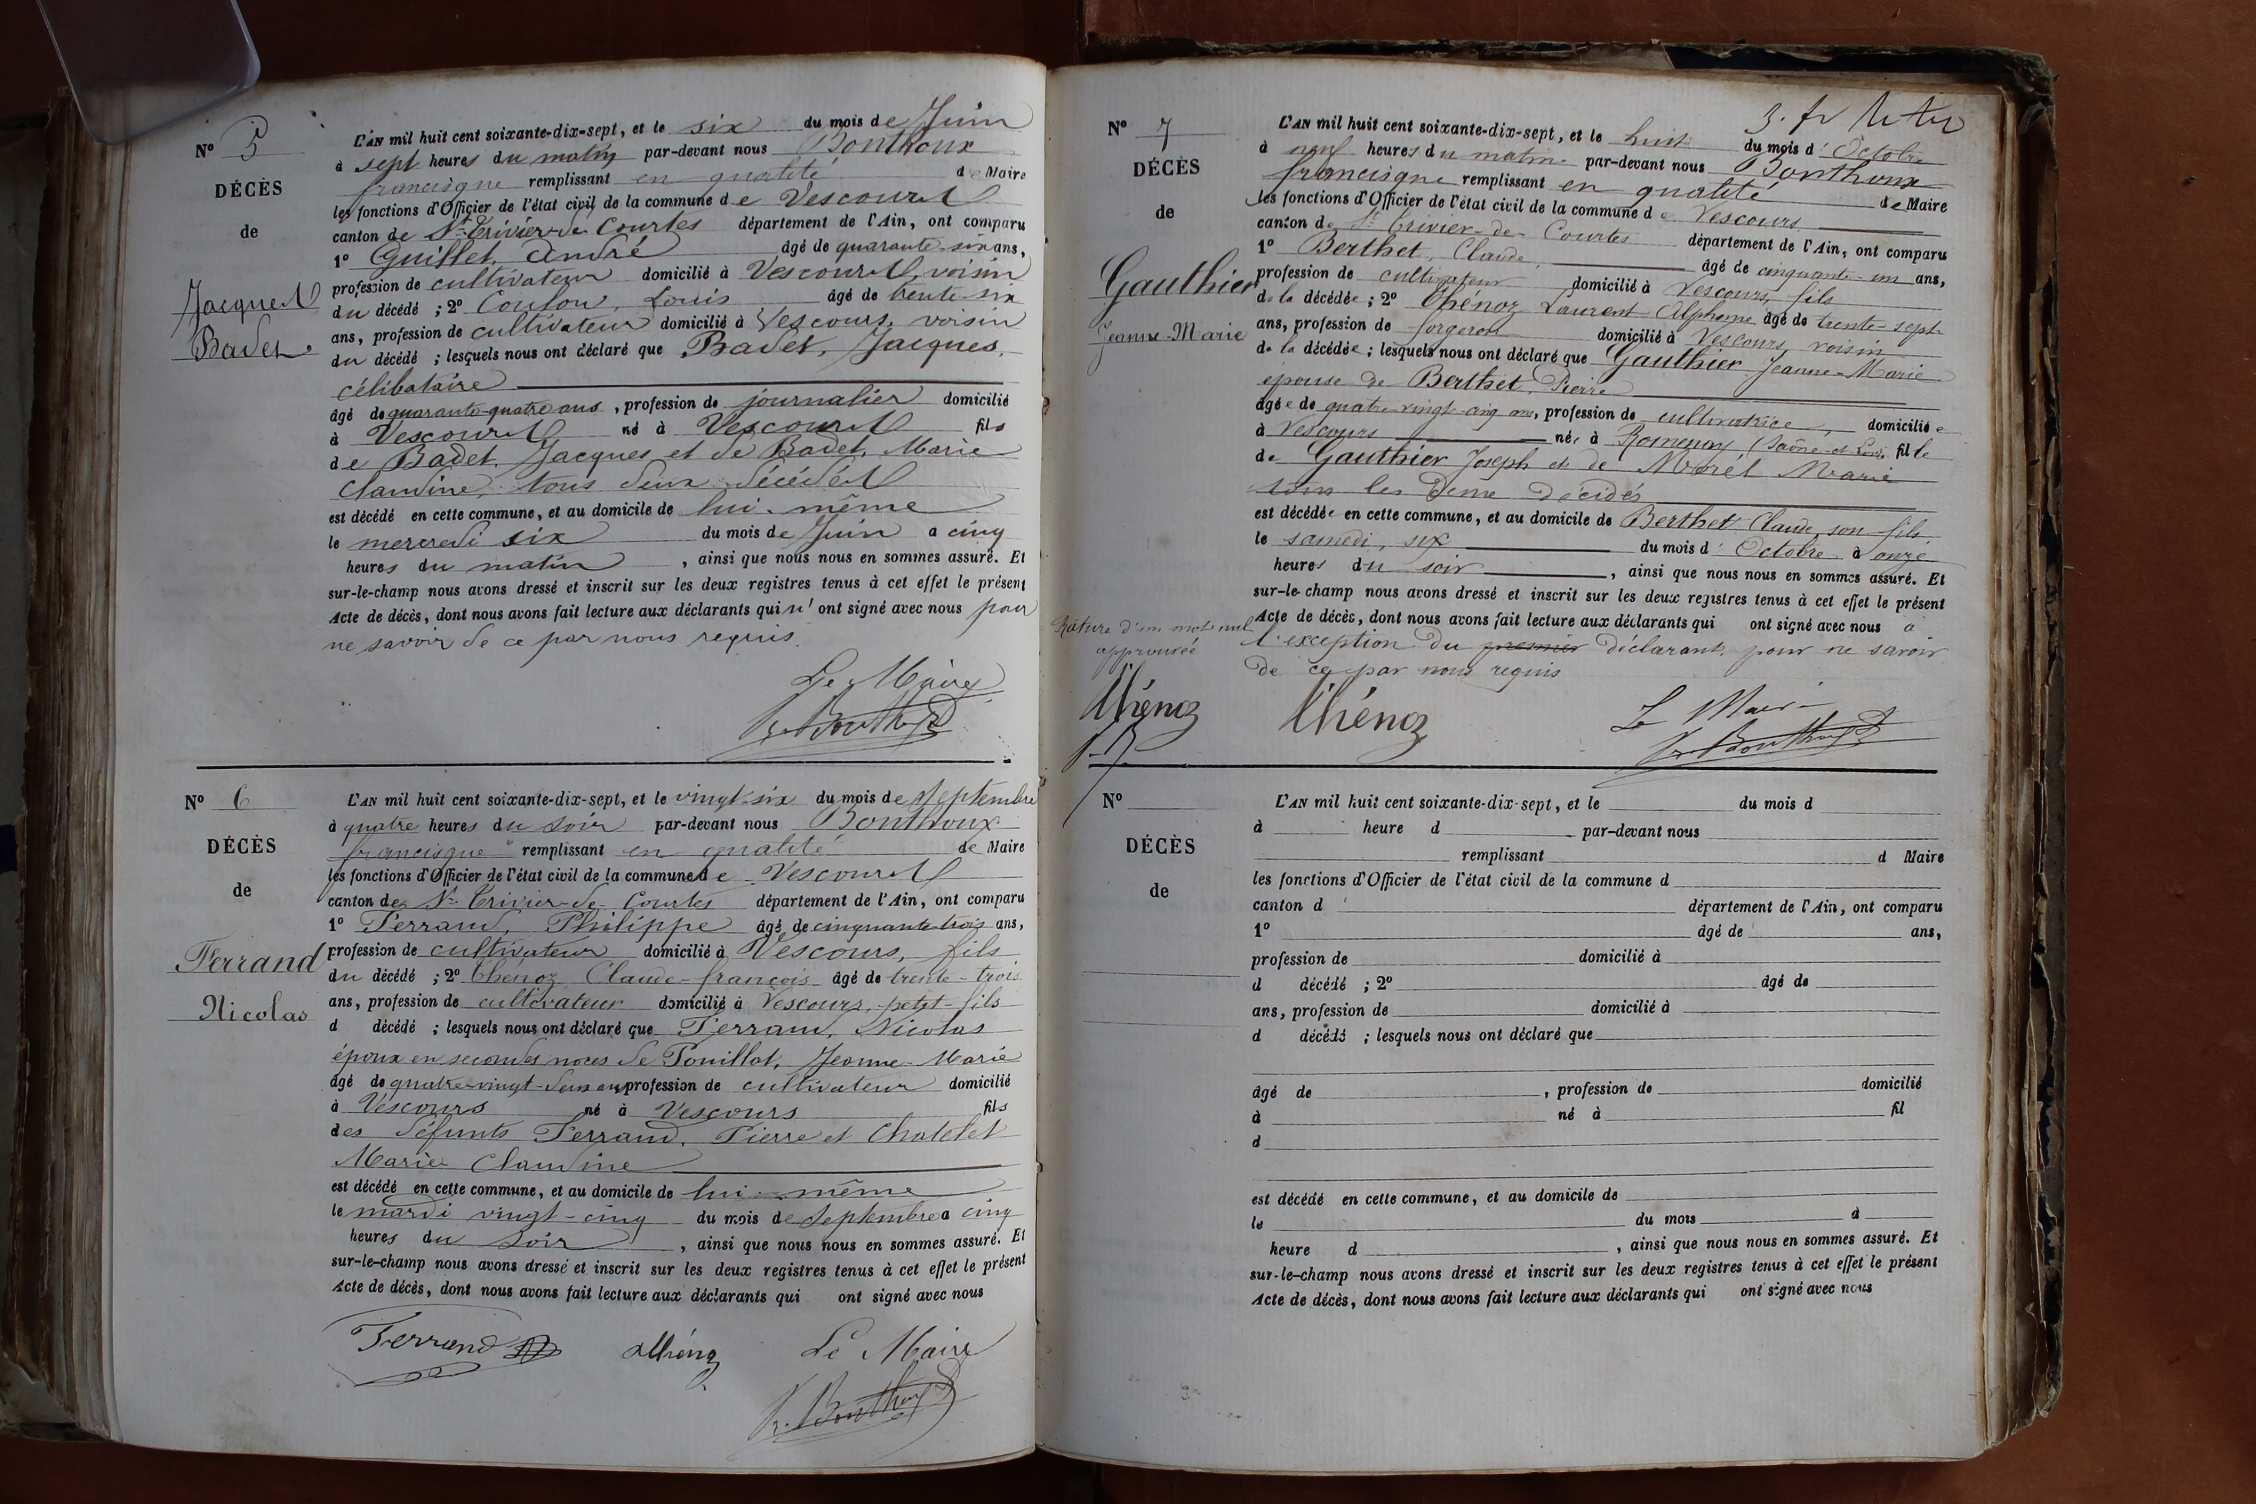 N° 5
DÉCÈS
de
Jacques
Badet.
L'AN mil huit cent soixante-dix-sept, et le six du mois de Juin
à sept heures du matin par-devant nous Bonthoux
francisque remplissant en qualité de Maire
les fonctions d'Officier de l'état civil de la commune de Vescours
canton de St Trivier-de Courtes département de l'Ain, ont comparu
1° Guillet, André âgé de quarante-six ans,
profession de cultivateur domicilié à Vescours, voisin
du décédé ; 2° Coulon, Louis âgé de trente-six
ans, profession de cultivateur domicilié à Vescours, voisin
du décédé ; lesquels nous ont déclaré que Badet, Jacques,
célibataire
âgé de quarante-quatre ans, profession de journalier domicilié
à Vescours né à Vescours fils
de Badet, Jacques et de Badet, Marie
Claudine, tous deux décédés
est décédé en cette commune, et au domicile de lui-même
le mercredi six du mois de Juin a cinq
heures du matin, ainsi que nous nous en sommes assuré. Et
sur-le-champ nous avons dressé et inscrit sur les deux registres tenus à cet effet le présent
Acte de décès, dont nous avons fait lecture aux déclarants qui n'ont signé avec nous pour
ne savoir de ce par nous requis.
Le Maire
fr. Bonthoux
N° 6
DÉCÈS
de
Ferrand
Nicolas
L'AN mil huit cent soixante-dix-sept, et le vingt-six du mois de Septembre
à quatre heures du soir par-devant nous Bonthoux
francisque remplissant en qualité de Maire
les fonctions d'Officier de l'état civil de la commune de Vescours
canton de St Trivier-de-Courtes département de l'Ain, ont comparu
1° Ferrand, Philippe âgé de cinquante-trois ans,
profession de cultivateur domicilié à Vescours, fils
du décédé ; 2° Thénoz Claude-françois âgé de trente-trois
ans, profession de cultivateur domicilié à Vescours, petit-fils
d décédé ; lesquels nous ont déclaré que Ferrand, Nicolas
époux en secondes noces de Pouillat, Jeanne-Marie
âgé de quatre-vingt-deux ans, profession de cultivateur domicilié
à Vescours né à Vescours fils
des défunts Ferrand, Pierre et Chatelet
Marie Claudine
est décédé en cette commune, et au domicile de lui-même
le mardi vingt-cinq du mois de Septembre a cinq
heures du soir, ainsi que nous nous en sommes assuré. Et
sur-le-champ nous avons dressé et inscrit sur les deux registres tenus à cet effet le présent
Acte de décès, dont nous avons fait lecture aux déclarants qui ont signé avec nous
Ferrand Thénoz Le Maire
fr. Bonthoux
N° 7
DÉCÈS
de
Gauthier
Jeanne-Marie
L'AN mil huit cent soixante-dix-sept, et le huit du mois d'Octobre
à neuf heures du matin par-devant nous Bonthoux
francisque remplissant en qualité de Maire
les fonctions d'Officier de l'état civil de la commune de Vescours
canton de St Trivier-de-Courtes département de l'Ain, ont comparu
1° Berthet, Claude, âgé de cinquante-un ans,
profession de cultivateur domicilié à Vescours, fils
de la décédée ; 2° Thénoz Laurent Alphonse âgé de trente-sept
ans, profession de forgeron domicilié à Vescours, voisin
de la décédée ; lesquels nous ont déclaré que Gauthier Jeanne-Marie
épouse de Berthet, Pierre
âgée de quatre-vingt-cinq ans, profession de cultivatrice, domiciliée
à Vescours née à Romenay (Saône-et-Loire) fille
de Gauthier Joseph et de Morél Marie
tous les deux décédés
est décédée en cette commune, et au domicile de Berthet Claude, son fils
le samedi, six du mois d'Octobre à onze
heures du soir, ainsi que nous nous en sommes assuré. Et
sur-le-champ nous avons dressé et inscrit sur les deux registres tenus à cet effet le présent
Acte de décès, dont nous avons fait lecture aux déclarants qui ont signé avec nous à
l'exception du premier déclarant, pour ne savoir
de ce par nous requis
Rature d'un mot nul
approuvée
Thénoz
f. B.
Thénoz Le Maire
fr. Bonthoux
N°
DÉCÈS
de
L'AN mil huit cent soixante-dix-sept, et le du mois d
à heure d par-devant nous
remplissant d Maire
les fonctions d'Officier de l'état civil de la commune d
canton d département de l'Ain, ont comparu
1° âgé de ans,
profession de domicilié à
d décédé ; 2° âgé de
ans, profession de domicilié à
d décédé ; lesquels nous ont déclaré que
âgé de , profession de domicilié
à né à fil
d
est décédé en cette commune, et au domicile de
le du mois à
heure d , ainsi que nous nous en sommes assuré. Et
sur-le-champ nous avons dressé et inscrit sur les deux registres tenus à cet effet le présent
Acte de décès, dont nous avons fait lecture aux déclarants qui ont signé avec nous